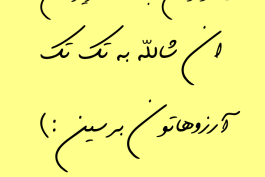 ان شاللّه به تک تک
آرزوهاتون برسین :)